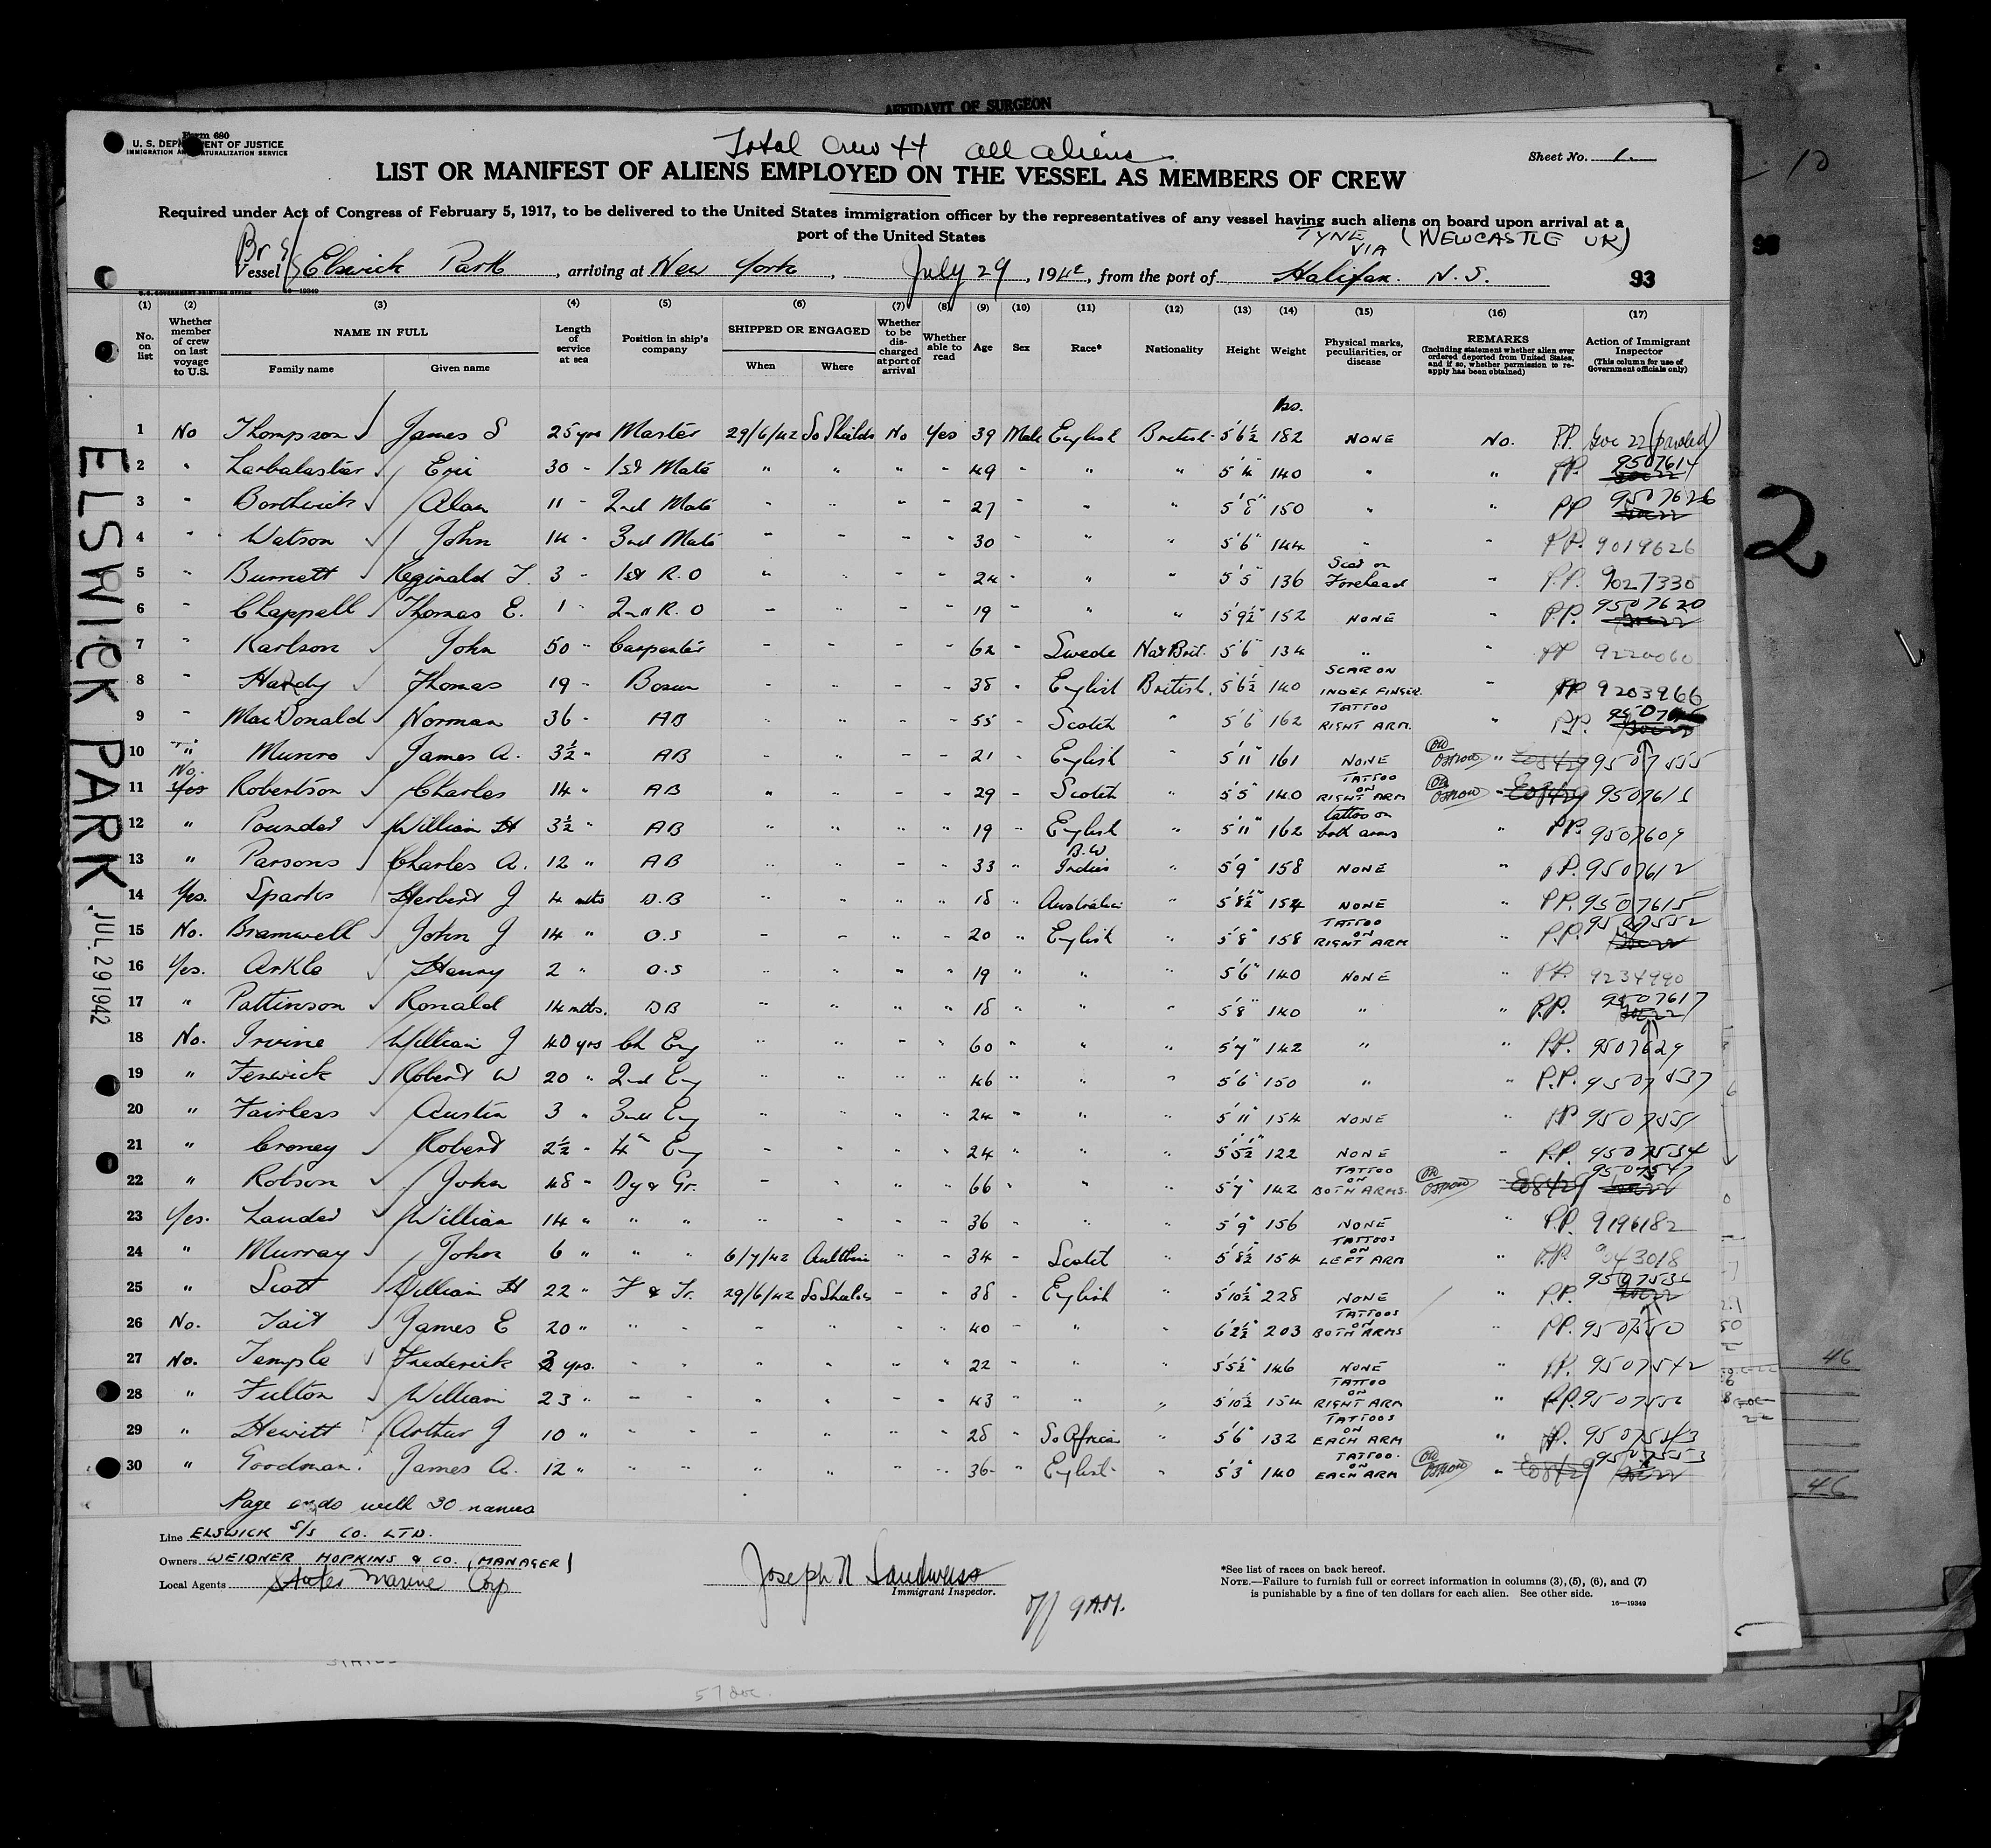 AFFIDAVIT OF SURGEON
Form 680
U. S. DEPARTMENT OF JUSTICE
IMMIGRATION AND NATURALIZATION SERVICE
Total Crew 44 all aliens
Sheet No. 1.
LIST OR MANIFEST OF ALIENS EMPLOYED ON THE VESSEL AS MEMBERS OF CREW
Required under Act of Congress of February 5, 1917, to be delivered to the United States immigration officer by the representatives of any vessel having such aliens on board upon arrival at a
port of the United States
TYNE (NEWCASTLE UK)
VIA
Br S/S
Vessel Elswick Park, arriving at New York, July 29, 1942, from the port of Halifax. N.S.
93
U. S. GOVERNMENT PRINTING OFFICE 16—19349
(1) (2) (3) (4) (5) (6) (7) (8) (9) (10) (11) (12) (13) (14) (15) (16) (17)
No. on list
Whether member of crew on last voyage to U.S.
NAME IN FULL
Family name Given name
Length of service at sea
Position in ship's company
SHIPPED OR ENGAGED
When Where
Whether to be discharged at port of arrival
Whether able to read
Age Sex Race* Nationality Height Weight
Physical marks, peculiarities, or disease
REMARKS
(Including statement whether alien ever ordered deported from United States, and if so, whether permission to reapply has been obtained)
Action of Immigrant Inspector
(This column for use of Government officials only)
lbs.
1 No Thompson James S 25 yrs Master 29/6/42 So Shields No Yes 39 Male English British 5'6½ 182 NONE No. P.P.
2 " Larbalastier Eric 30 - 1st Mate " " " " 49 " " " 5'4" 140 " " P.P. 9507614
3 " Borthwick Alan 11 - 2nd Mate " " " " 27 " " " 5'8" 150 " " PP 9507626
4 " Watson John 14 - 3rd Mate " " " " 30 " " " 5'6" 144 " " P.P. 9019626
5 " Burnett Reginald T. 3 - 1st R.O " " " " 24 " " " 5'5" 136 Scar on Forehead " P.P. 9027330
6 " Chappell Thomas E. 1 - 2nd R.O " " " " 19 " " " 5'9½" 152 NONE " P.P. 9507620
7 " Karlson John 50 - Carpenter " " " " 62 " Swede Nat Brit. 5'6 134 " " PP 9220060
8 " Hardy Thomas 19 - Bosun " " " " 38 " English British. 5'6½ 140 SCAR ON INDEX FINGER " PP 9203966
9 " MacDonald Norman 36 - AB " " " " 55 " Scotch " 5'6" 162 TATTOO RIGHT ARM. " P.P.
10 " Munro James A. 3½ " AB " " " " 21 " English " 5'11" 161 NONE "
11 No. Yes Robertson Charles 14 " AB " " " " 29 " Scotch " 5'5" 140 TATTOO ON RIGHT ARM "
12 " Pounder William H 3½ " AB " " " " 19 " English " 5'11" 162 tattoo on both arms " P.P. 9507609
13 " Parsons Charles A. 12 " AB " " " " 33 " B.W Indies " 5'9" 158 NONE " P.P. 9507612
14 Yes. Sparks Herbert J 4 mths D.B " " " " 18 " Australian " 5'8½" 154 NONE " P.P. 9507615
15 No. Bramwell John J 14 " O.S " " " " 20 " English " 5'8" 158 TATTOO ON RIGHT ARM " P.P. 9507552
16 Yes. Arkle Henry 2 " O.S " " " " 19 " " " 5'6" 140 NONE " P.P. 9234990
17 " Pattinson Ronald 14 mths. DB " " " " 18 " " " 5'8" 140 " " P.P. 9507617
18 No. Irvine William J 40 yrs Ch Eng " " " " 60 " " " 5'7" 142 " " P.P. 9507629
19 " Fenwick Robert W 20 " 2nd Eng " " " " 46 " " " 5'6" 150 " " P.P. 9507537
20 " Fairless Austin 3 " 3rd Eng " " " " 24 " " " 5'11" 154 NONE " PP
21 " Croney Robert 2½ " 4th Eng " " " " 24 " " " 5'5½" 122 NONE " P.P. 9507534
22 " Robson John 48 " Dy & Gr. " " " " 66 " " " 5'7" 142 TATTOO ON BOTH ARMS. " 9507547
23 Yes. Lauder William 14 " " " " " " " 36 " " " 5'9" 156 NONE " P.P. 9196182
24 " Murray John 6 " " " 6/7/42 " " 34 " Scotch " 5'8½" 154 TATTOOS ON LEFT ARM " P.P. 9043018
25 " Scott William H 22 " F & Tr. 29/6/42 So Shields " " 38 " English " 5'10½" 228 NONE " P.P. 9507536
26 No. Tait James E 20 " " " " " " " 40 " " " 6'2½" 203 TATTOOS ON BOTH ARMS " P.P. 9507550
27 No. Temple Frederick 2 yrs. " " " " " " 22 " " " 5'5½" 146 NONE " P.P. 9507542
28 " Fulton William 23 " " " " " " " 43 " " " 5'10½ 154 TATTOO ON RIGHT ARM " P.P.
29 " Hewitt Arthur J 10 " " " " " " " 28 " So African " 5'6" 132 TATTOOS ON EACH ARM " P.P. 9507543
30 " Goodman. James A. 12 " " " " " " " 36 " English " 5'3" 140 TATTOO ON EACH ARM " 9507553
Page ends with 30 names
Line ELSWICK S/S CO. LTD.
Owners WEIDNER HOPKINS & CO. (MANAGER)
Local Agents States Marine Corp
Joseph N Sandweiss
Immigrant Inspector.
9 A.M.
*See list of races on back hereof.
NOTE.—Failure to furnish full or correct information in columns (3), (5), (6), and (7)
is punishable by a fine of ten dollars for each alien. See other side.
16—19349
ELSWICK PARK
JUL 29 1942
2
46
46